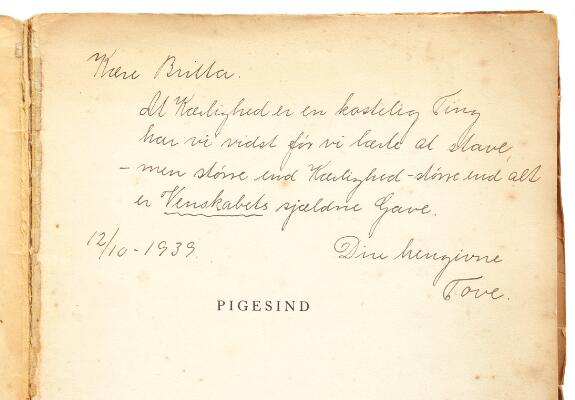 Kære Britta.
At Kærlighed er en kostelig Ting
har vi vidst før vi lærte at stave,
– men større end Kærlighed – større end alt
er Venskabets sjældne Gave.
12/10 - 1939.
Din hengivne
Tove.
PIGESIND